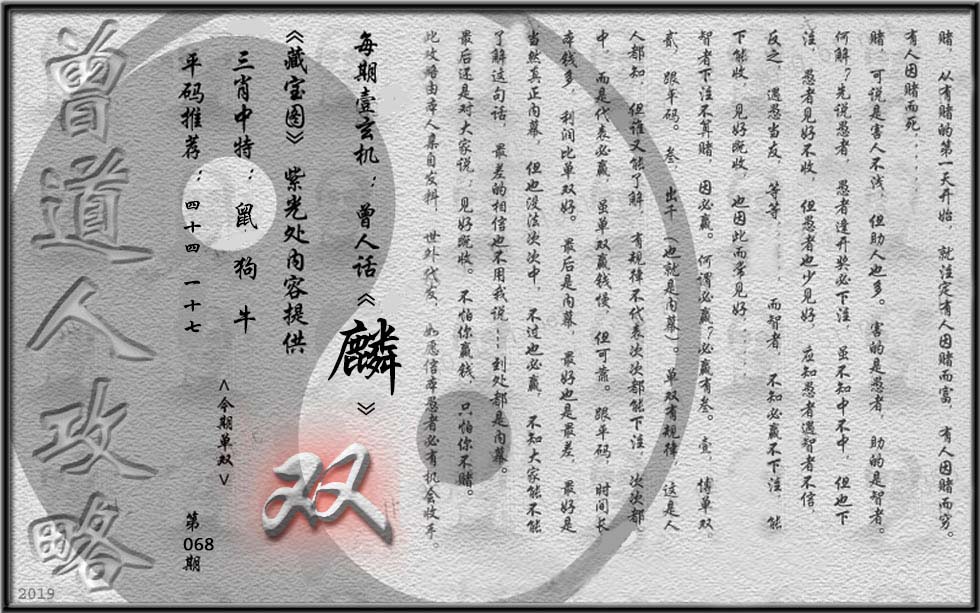 赌，从有赌的第一天开始，就注定有人因赌而富，有人因赌而穷。
有人因赌而死.....
赌，可说是害人不浅，但助人也多。害的是愚者，助的是智者。
何解？先说愚者，愚者逢开奖必下注，虽不知中不中，但也下
注，愚者见好不收，但愚者也少见好，应知愚者遇智者不信，
反之，遇愁当友，等等......而智者，不知必赢不下注，能
下能收，见好既收，也因此而常见好....
智者下注不算赌，因必赢。何谓必赢？必赢有叁。壹，博单双，
贰，跟平码。叁，出千（也就是内幕）。单双有规律，这是人
人都知，但谁又能了解，有规律不代表次次都能下注，次次都
中，而是代表必赢，虽单双赢钱慢，但可靠。跟平码，时间长
本钱多，利润比单双好。最后是内幕，最好也是最差，最好是
当然真正内幕，但也没法次次中，不过也必赢，不知大家能不能
了解这句话，最差的相信也不用我说……到处都是内幕。
最后还是对大家说：见好既收。不怕你赢钱，只怕你不赌。
此攻略由本人集自发料，世外代友，如愿信本愚者必有机会收手。
每期壹玄机：曾人话《麟》
《藏宝图》紫光处内容提供
三肖中特：鼠 狗 牛
平码推荐：四十四 一十七
<今期单双>
双
第068期
曾道人攻略
2019